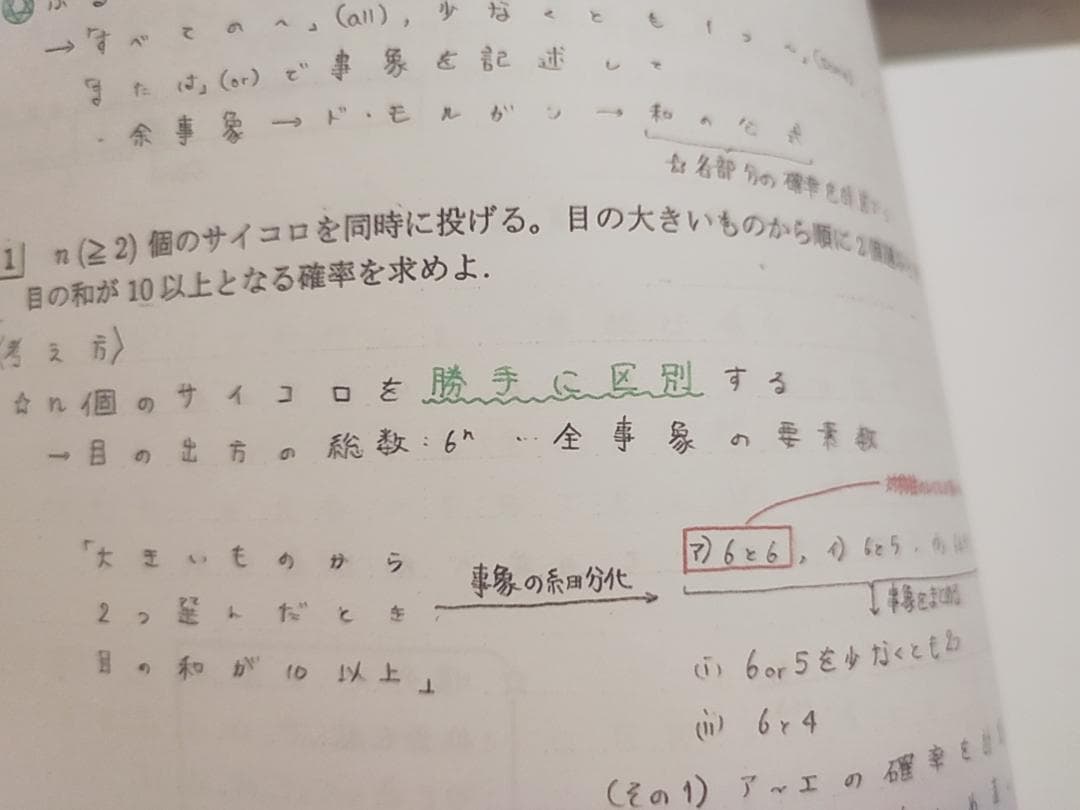 →「すべての〜」(all), 少なくとも1つ〜」
「または」(or)で事象を記述して
・余事象→ド・モルガン→和の公式
☆各部分の確率を
1 n(≧2)個のサイコロを同時に投げる。目の大きいものから順に2個
目の和が10以上となる確率を求めよ.
〈考え方〉
☆n個のサイコロを勝手に区別する
→目の出方の総数:6ⁿ…全事象の要素数
「大きいものから
2つ選んだとき
目の和が10以上」
事象の細分化
ア)6と6, イ)6と5,
事象をまとめる
(i) 6or5を少なくとも2つ
(ii) 6と4
(その1)ア〜エの確率を